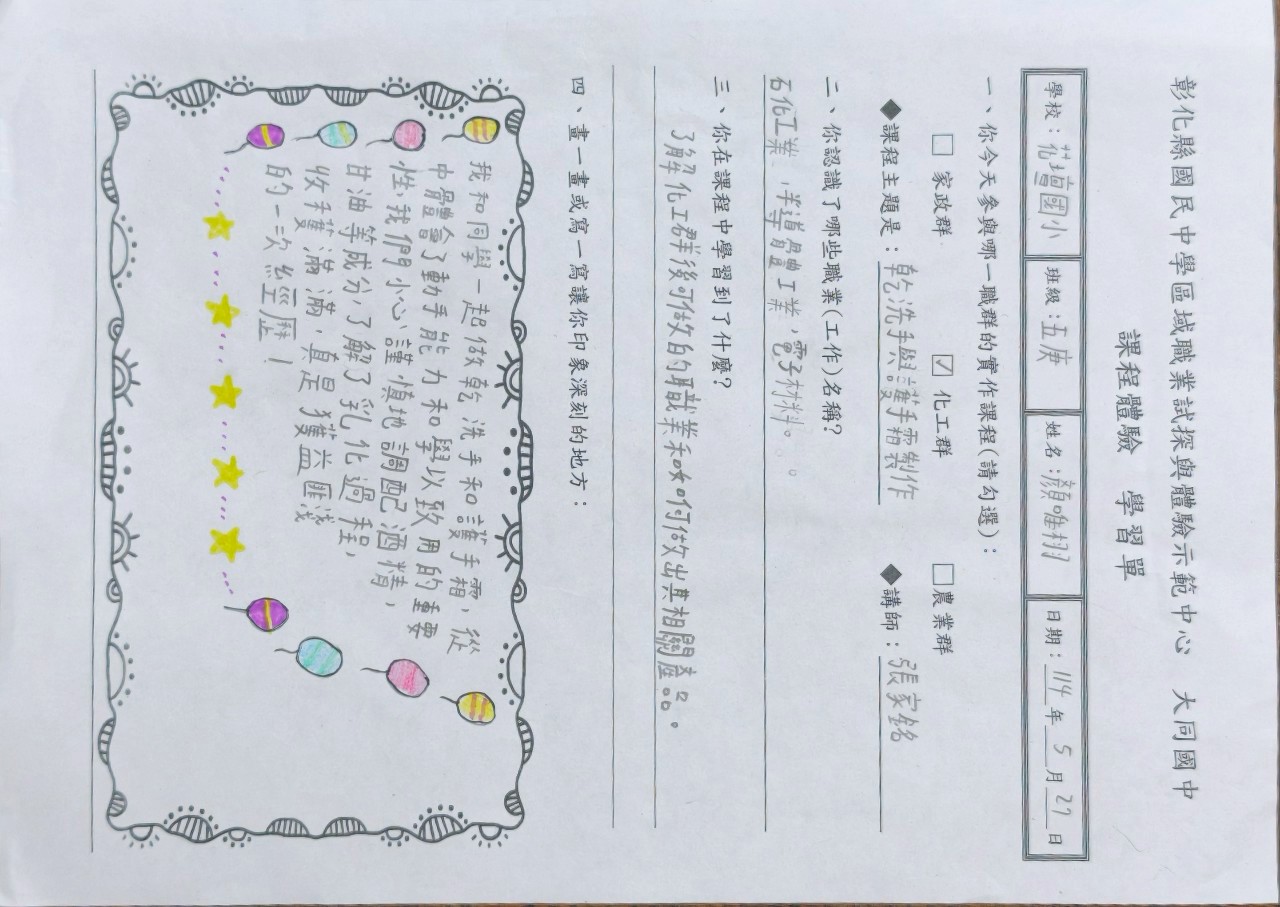 彰化縣國民中學區域職業試探與體驗示範中心 大同國中
課程體驗 學習單
學校：花壇國小 班級：五庚 姓名：顏唯栩 日期：114年5月27日
一、你今天參與哪一職群的實作課程(請勾選)：
□ 家政群 ☑ 化工群 □農業群
◆課程主題是：乾洗手與護手霜製作 ◆講師：張家銘
二、你認識了哪些職業(工作)名稱?
石化工業、半導體工業，電子材料。
三、你在課程中學習到了什麼?
了解化工群後可做的職業和如何做出其相關產品。
四、畫一畫或寫一寫讓你印象深刻的地方：
我和同學一起做乾洗手和護手霜，從
中體會了動手能力和學以致用的重要
性我們小心謹慎地調配酒精，
甘油等成分，了解了乳化過程，
收穫滿滿，真是獲益匪淺
的一次經歷！